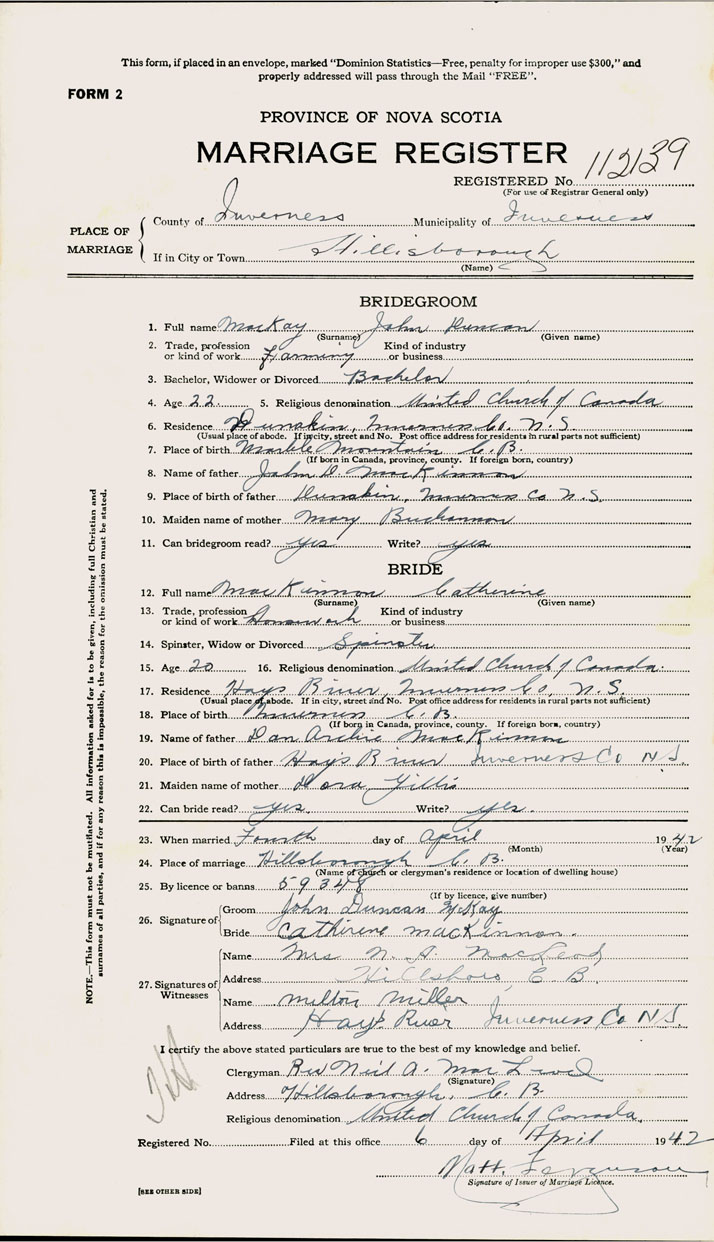 This form, if placed in an envelope, marked "Dominion Statistics—Free, penalty for improper use $300," and
properly addressed will pass through the Mail "FREE".
FORM 2
PROVINCE OF NOVA SCOTIA
MARRIAGE REGISTER
REGISTERED No. 112139
(For use of Registrar General only)
PLACE OF MARRIAGE
County of Inverness Municipality of Inverness
If in City or Town Hillisborough
(Name)
BRIDEGROOM
1. Full name MacKay John Duncan
(Surname) (Given name)
2. Trade, profession or kind of work Farming Kind of industry or business
3. Bachelor, Widower or Divorced Bachelor
4. Age 22 5. Religious denomination United Church of Canada
6. Residence Dunakin, Inverness Co. N.S.
(Usual place of abode. If in city, street and No. Post office address for residents in rural parts not sufficient)
7. Place of birth Marble Mountain C.B.
(If born in Canada, province, county. If foreign born, country)
8. Name of father John D. MacKinnon
9. Place of birth of father Dunakin, Inverness Co N.S.
10. Maiden name of mother Mary Buchannon
11. Can bridegroom read? yes Write? yes
BRIDE
12. Full name MacKinnon Catherine
(Surname) (Given name)
13. Trade, profession or kind of work Housework Kind of industry or business
14. Spinster, Widow or Divorced Spinster
15. Age 20 16. Religious denomination United Church of Canada.
17. Residence Hays River, Inverness Co, N.S.
(Usual place of abode. If in city, street and No. Post office address for residents in rural parts not sufficient)
18. Place of birth Inverness C.B.
(If born in Canada, province, county. If foreign born, country)
19. Name of father Dan Archie MacKinnon
20. Place of birth of father Hays River Inverness Co N.S.
21. Maiden name of mother Dora Gillis
22. Can bride read? yes. Write? yes.
23. When married Fourth day of April 1942
(Month) (Year)
24. Place of marriage Hillsborough C.B.
(Name of church or clergyman's residence or location of dwelling house)
25. By licence or banns 59348
(If by licence, give number)
26. Signature of
Groom John Duncan McKay
Bride Catherine MacKinnon.
27. Signatures of Witnesses
Name Mrs N. A. MacLeod
Address Hillsboro, C.B.
Name Milton Miller
Address Hays River Inverness Co N.S.
I certify the above stated particulars are true to the best of my knowledge and belief.
Clergyman Rev Neil A. MacLeod
(Signature)
Address Hillsborough, C.B.
Religious denomination United Church of Canada.
Registered No. Filed at this office 6 day of April 1942
Matt. Ferguson
Signature of Issuer of Marriage Licence.
[SEE OTHER SIDE]
NOTE.—This form must not be mutilated. All information asked for is to be given, including full Christian and
surnames of all parties, and if for any reason this is impossible, the reason for the omission must be stated.